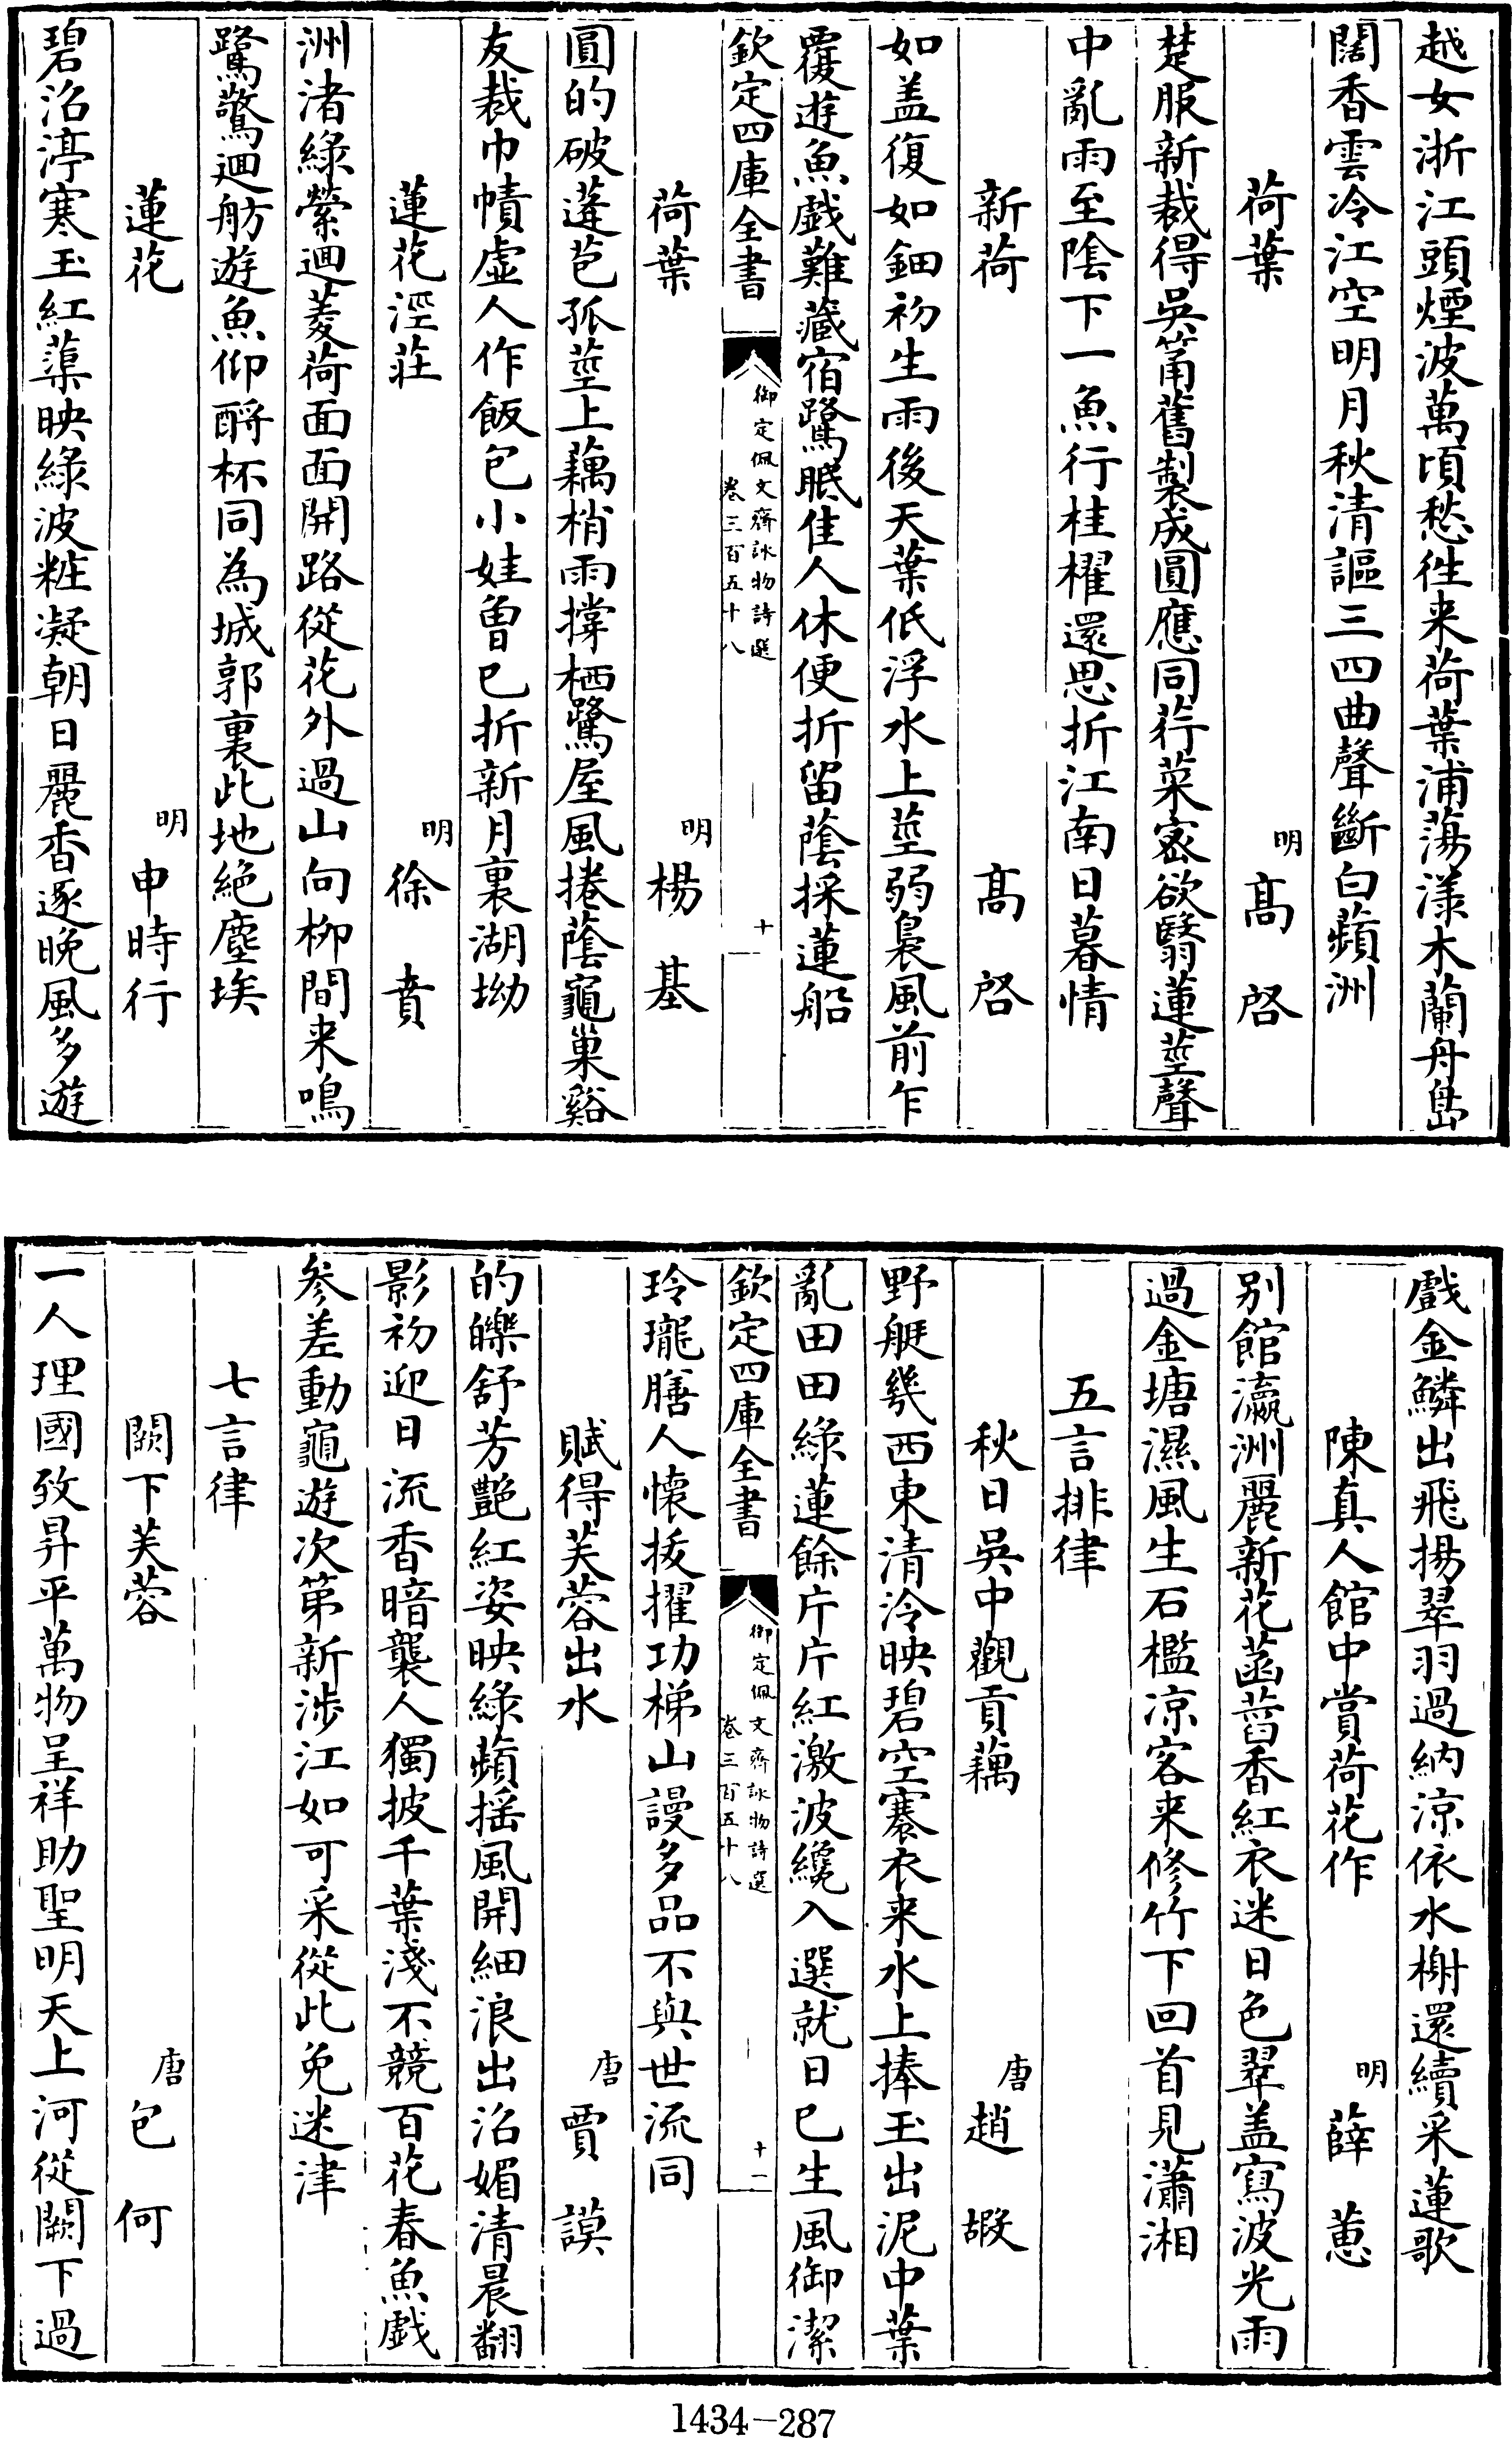 越女浙江頭煙波萬頃愁徃来荷葉浦蕩漾木蘭舟島
闊香雲冷江空明月秋清謳三四曲聲斷白蘋洲
荷葉
明
髙啓
楚服新裁得吳筩舊製成圓應同荇菜宻欲翳蓮莖聲
中亂雨至陰下一魚行桂櫂還思折江南日暮情
新荷
髙啓
如盖復如鈿初生雨後天葉低浮水上莖弱裊風前乍
覆遊魚戲難藏宿鷺眠佳人休便折留蔭採蓮船
欽定四庫全書
御定佩文齋詠物詩選
卷三百五十八
十
荷葉
明
楊基
圓的破蓬苞孤莖上藕梢雨撐栖鷺屋風捲蔭龜巢谿
友裁巾幘虛人作飯包小娃曽已折新月裏湖坳
蓮花涇莊
明
徐賁
洲渚綠縈迴菱荷面面開路從花外過山向栁間来鳴
鷺驚迴舫遊魚仰酹杯同為城郭裏此地絶塵埃
蓮花
明
申時行
碧沼渟寒玉紅蕖映綠波粧凝朝日麗香逐晚風多遊
戲金鱗出飛揚翠羽過納涼依水榭還續采蓮歌
陳真人館中賞荷花作
明
薛蕙
别館瀛洲麗新花菡萏香紅衣迷日色翠盖寫波光雨
過金塘濕風生石檻凉客来修竹下回首見瀟湘
五言排律
秋日吳中觀貢藕
唐
趙嘏
野艇幾西東清泠映碧空褰衣来水上捧玉出泥中葉
亂田田綠蓮餘片片紅激波纔入選就日已生風御潔
欽定四庫全書
御定佩文齋詠物詩選
卷三百五十八
十一
玲瓏膳人懐拔擢功梯山謾多品不與世流同
賦得芙蓉出水
唐
賈謨
的皪舒芳艶紅姿映綠蘋揺風開細浪出沼媚清晨翻
影初迎日流香暗襲人獨披千葉淺不競百花春魚戲
参差動龜遊次第新涉江如可采從此免迷津
七言律
闕下芙蓉
唐
包何
一人理國致昇平萬物呈祥助聖明天上河從闕下過
1434-287